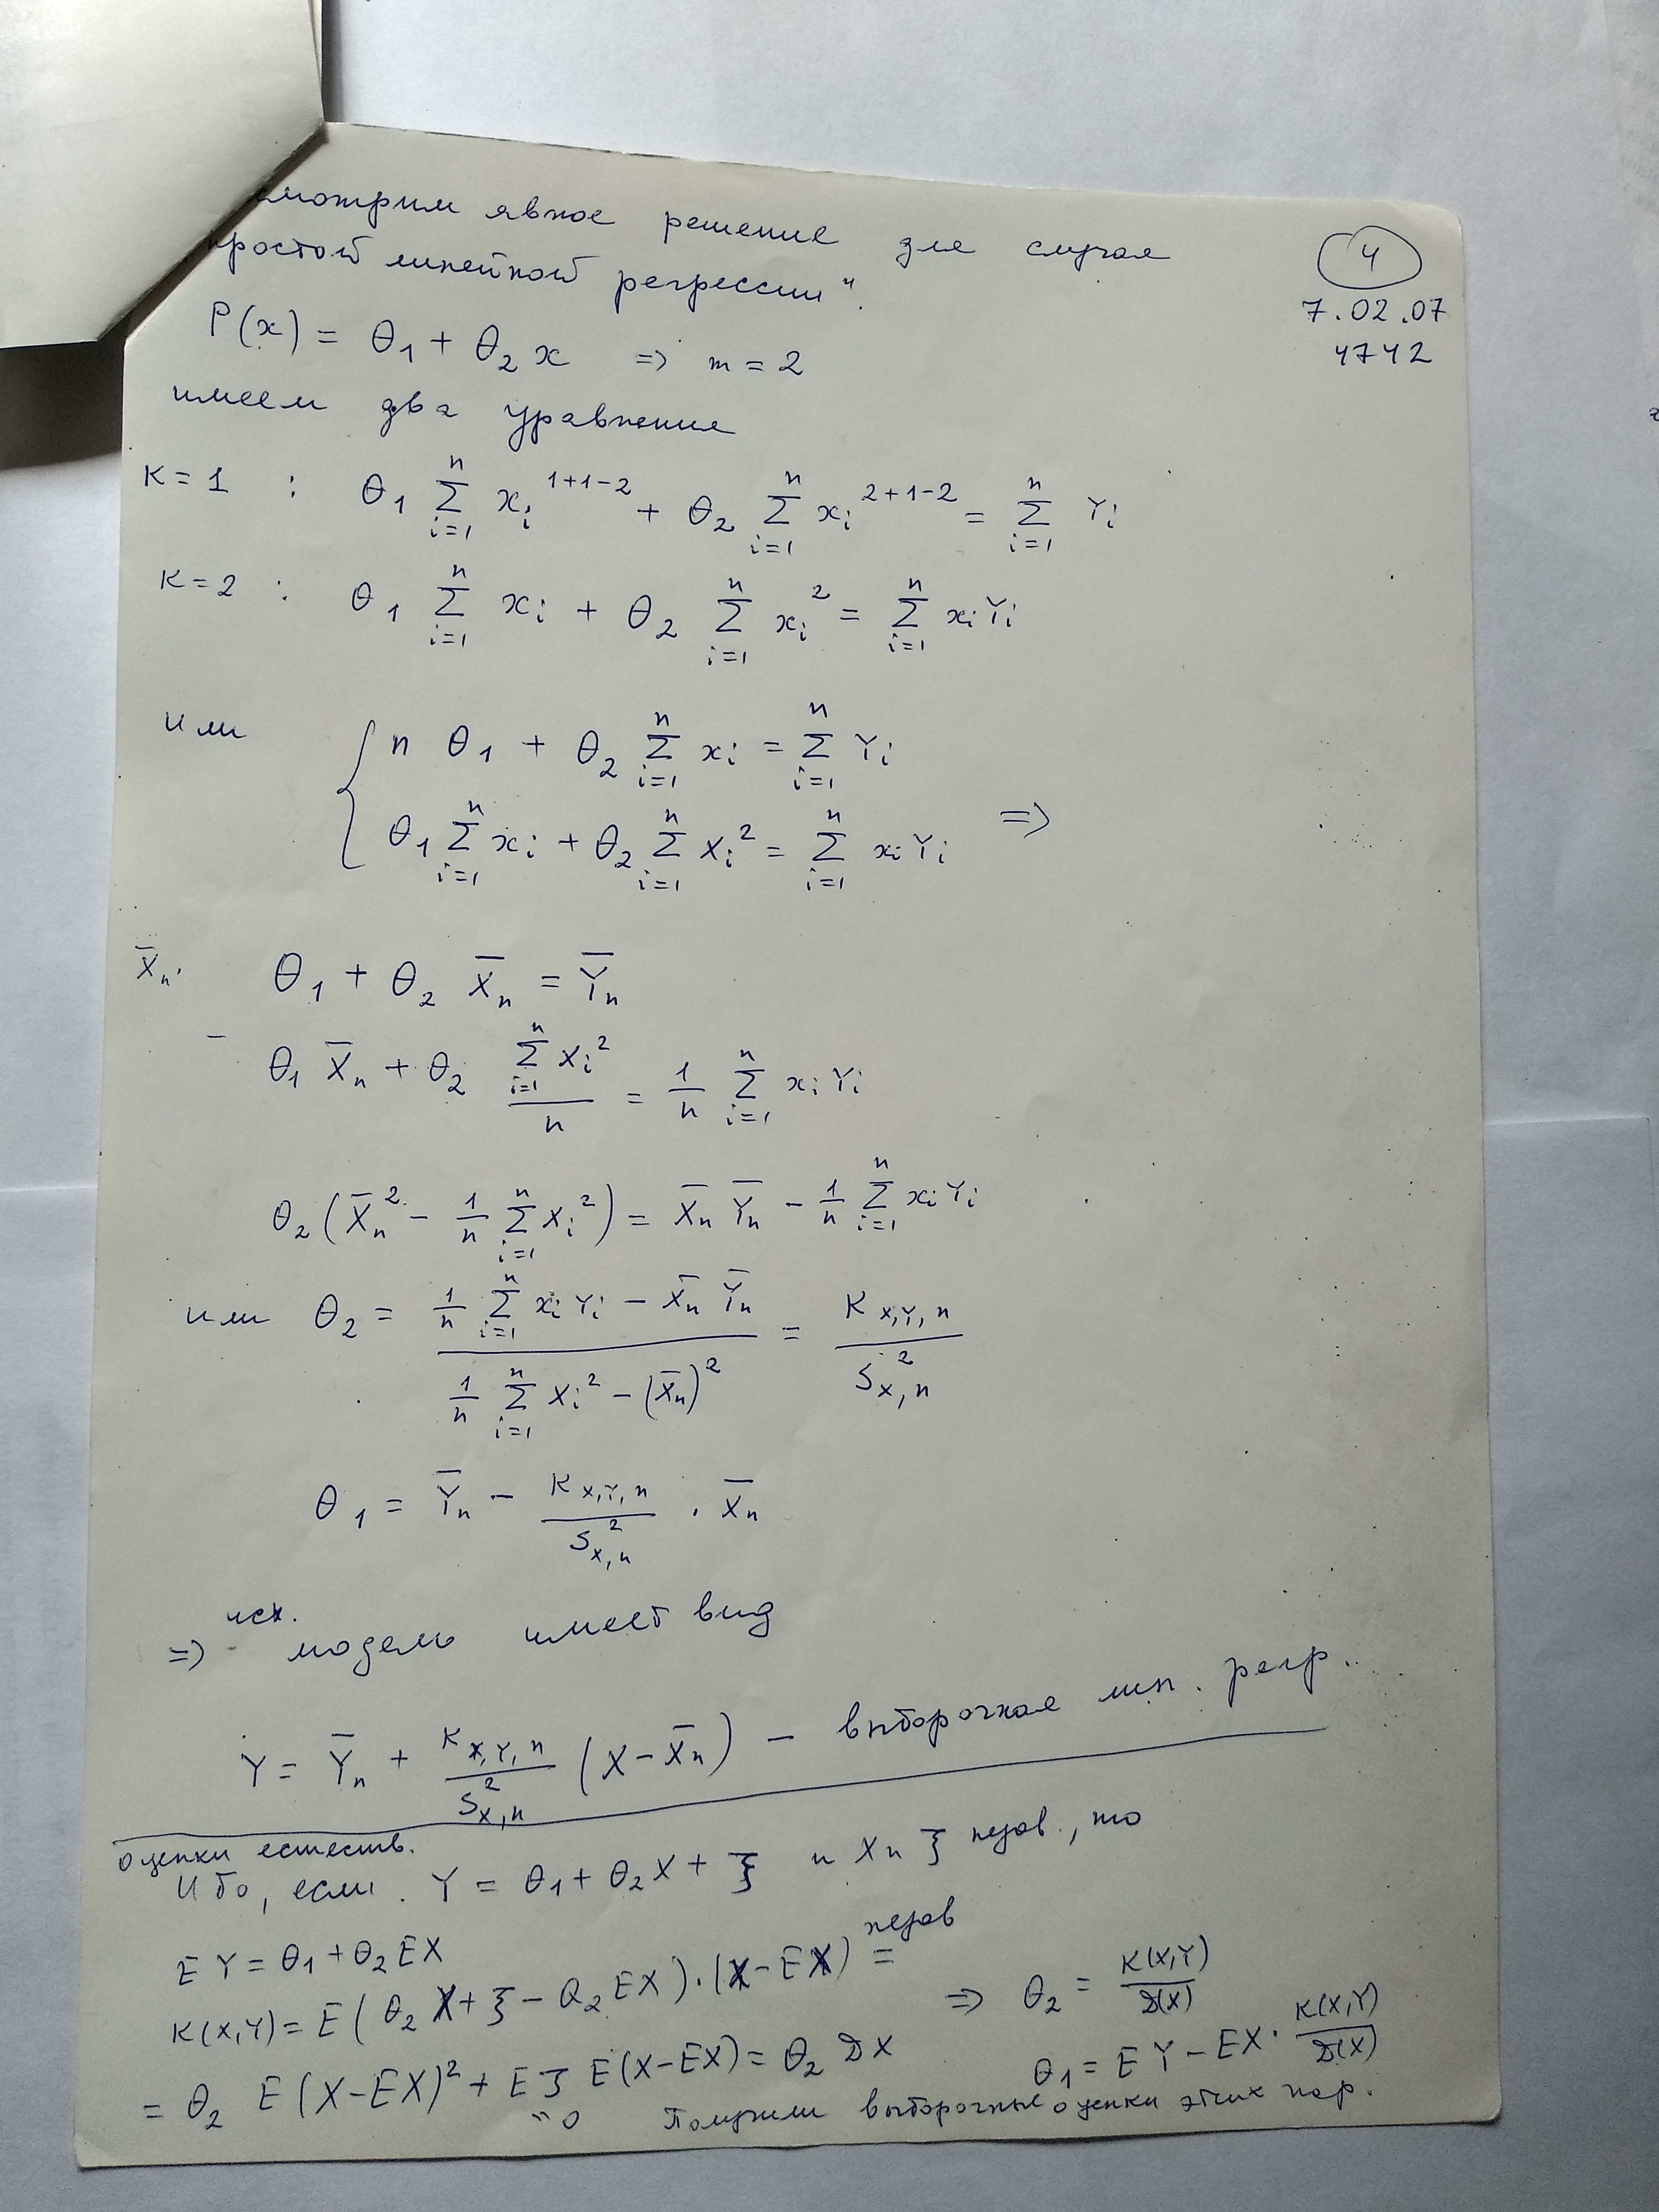 смотрим явное решение для случая
простой линейной регрессии".
4
7.02.07
4742
P(x) = θ₁ + θ₂ x => m = 2
имеем два уравнения
K = 1 : θ₁ ∑_{i=1}^{n} x_i^{1+1-2} + θ₂ ∑_{i=1}^{n} x_i^{2+1-2} = ∑_{i=1}^{n} Y_i
K = 2 : θ₁ ∑_{i=1}^{n} x_i + θ₂ ∑_{i=1}^{n} x_i² = ∑_{i=1}^{n} x_i Y_i
или { n θ₁ + θ₂ ∑_{i=1}^{n} x_i = ∑_{i=1}^{n} Y_i
θ₁ ∑_{i=1}^{n} x_i + θ₂ ∑_{i=1}^{n} X_i² = ∑_{i=1}^{n} x_i Y_i =>
X̄_n· θ₁ + θ₂ X̄_n = Ȳ_n
− θ₁ X̄_n + θ₂ (∑_{i=1}^{n} X_i²)/n = 1/n ∑_{i=1}^{n} x_i Y_i
θ₂ (X̄_n² − 1/n ∑_{i=1}^{n} X_i²) = X̄_n Ȳ_n − 1/n ∑_{i=1}^{n} x_i Y_i
или θ₂ = (1/n ∑_{i=1}^{n} x_i Y_i − X̄_n Ȳ_n) / (1/n ∑_{i=1}^{n} X_i² − (X̄_n)²) = K_{X,Y,n} / S²_{X,n}
θ₁ = Ȳ_n − K_{X,Y,n} / S²_{X,n} · X̄_n
=> исх. модель имеет вид
Y = Ȳ_n + K_{X,Y,n} / S²_{X,n} (X − X̄_n) − выборочная лин. регр.
оценки естеств.
Ибо, если Y = θ₁ + θ₂X + ξ и X и ξ незав., то
EY = θ₁ + θ₂ EX
K(X,Y) = E(θ₂ X + ξ − θ₂ EX)·(X − EX) = незав
= θ₂ E(X − EX)² + Eξ E(X − EX) = θ₂ DX
"0
=> θ₂ = K(X,Y) / D(X)
θ₁ = EY − EX · K(X,Y) / D(X)
Получили выборочные оценки этих пар.